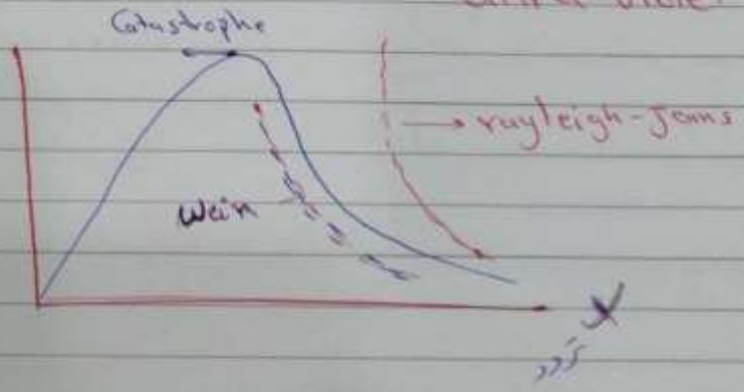 Catastrophe
rayleigh-Jeans
Wein